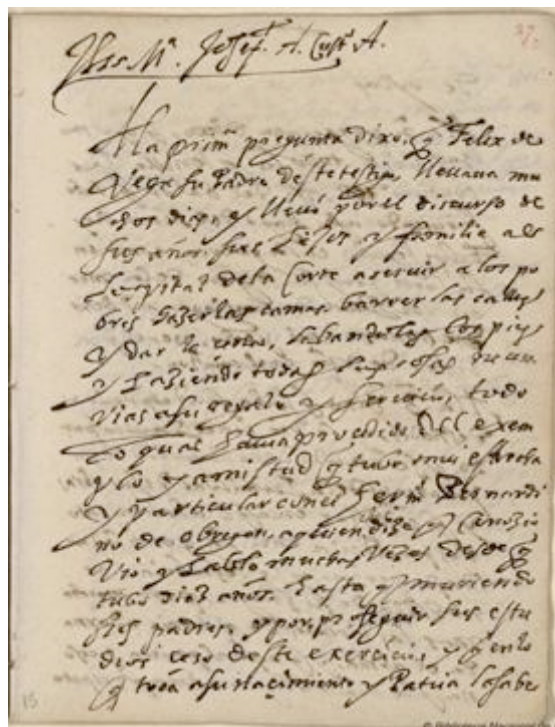 Jhs. Mª. Josef. A. Cust. A.
37
A la primª pregunta dixo, q Felix de
Vega su Padre deste testigo, lleuaua mu
chos dias, y lleuó por el discurso de
seis años, sus hijos y familia al
hospital de la Corte a seruir a los po
bres hazer las camas, barrer las
y dar
y haziendo todas las cosas nece
rias a su regalo y seruicio, todo
lo qual hauia procedido del exem
plo y amistad q tubo mui estrecha
y particular con el herº Bernardi
no de obregon, a quien dize q conozio
Vio y hablo muchas vezes desde q
tubo diez años, hasta q muriendo
sus padres, y por proseguir sus estu
dios ceso deste exercicio, y q en lo
q toca a su naçimiento y Patria lo sabe
15